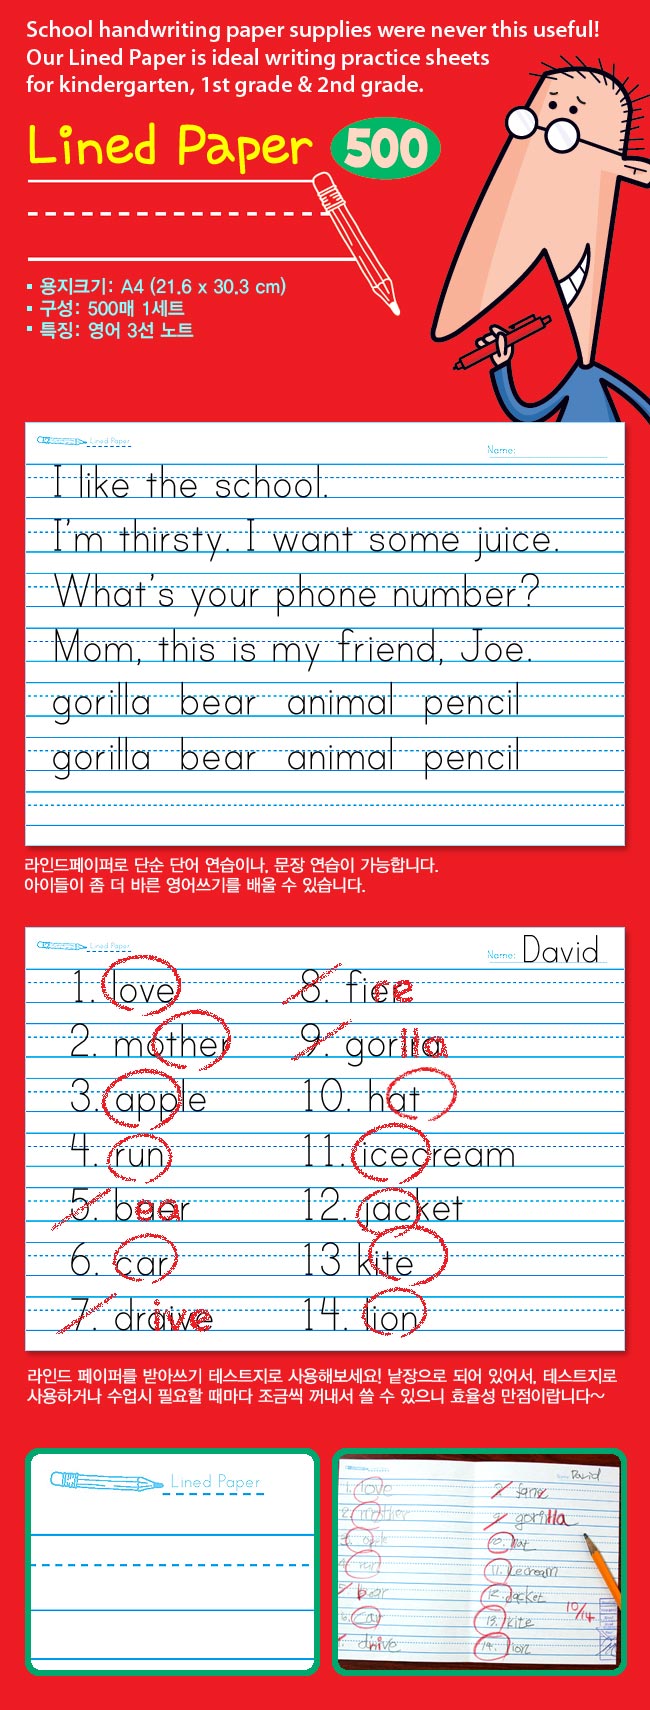 School handwriting paper supplies were never this useful!
Our Lined Paper is ideal writing practice sheets
for kindergarten, 1st grade & 2nd grade.
Lined Paper 500
▪ 용지크기: A4 (21.6 x 30.3 cm)
▪ 구성: 500매 1세트
▪ 특징: 영어 3선 노트
Lined Paper
Name:
I like the school.
I'm thirsty. I want some juice.
What's your phone number?
Mom, this is my friend, Joe.
gorilla bear animal pencil
gorilla bear animal pencil
라인드페이퍼로 단순 단어 연습이나, 문장 연습이 가능합니다.
아이들이 좀 더 바른 영어쓰기를 배울 수 있습니다.
Lined Paper
Name: David
1. love
2. mother
3. apple
4. run
5. bear
6. car
7. drive
8. fice
9. gorlla
10. hat
11. icecream
12. jacket
13 kite
14. lion
라인드 페이퍼를 받아쓰기 테스트지로 사용해보세요! 낱장으로 되어 있어서, 테스트지로
사용하거나 수업시 필요할 때마다 조금씩 꺼내서 쓸 수 있으니 효율성 만점이랍니다~
Lined Paper
David
1. love
2. mother
bear
car
drive
gorilla
10. hat
11. icecream
12. jacket
13. kite
14. lion
10/14